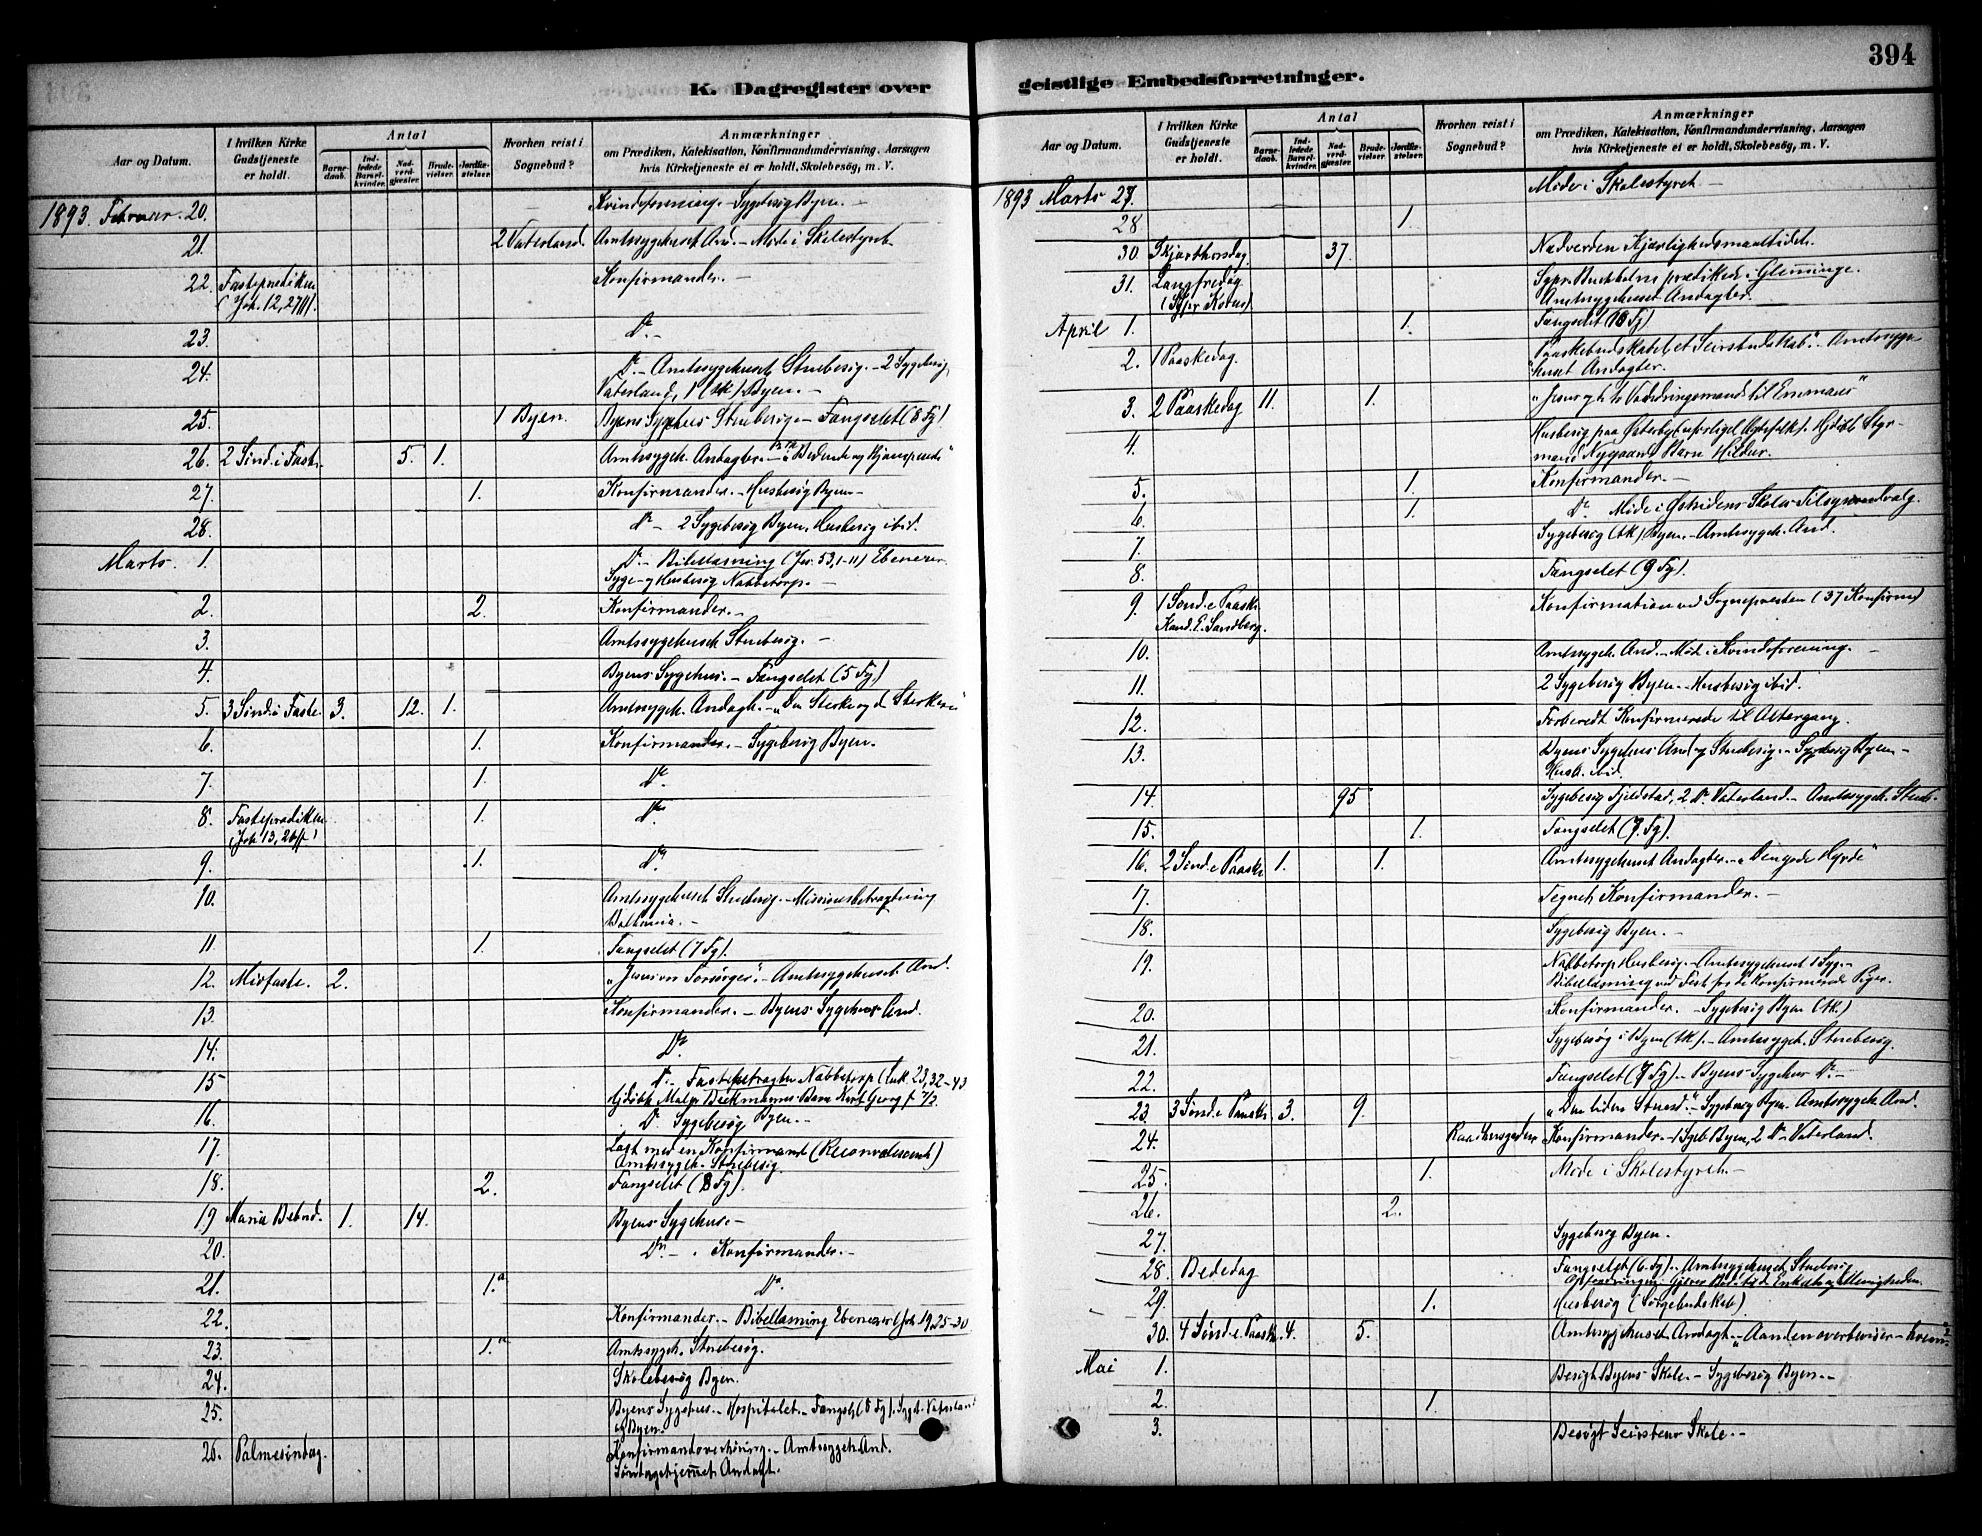 394
K. Dagregister over
geistlige Embedsforretninger.
Aar og Datum.
I hvilken Kirke Gudstjeneste er holdt.
Antal
Barne-daab.
Ind-ledede Barsel-kvinder.
Nad-verd-gjester.
Brude-vielser.
Jordfæ-stelser.
Hvorhen reist i Sognebud?
Anmærkninger
om Prædiken, Katekisation, Konfirmandundervisning, Aarsagen
hvis Kirketjeneste ei er holdt, Skolebesög, m. V.
1893. Februar. 20. Kvindeforening. - Sygebesøg Byen. -
21. 2 Vaterland. Amtssygehuset And. - Møde i Skolestyret.
22. Fasteprædiken Konfirmander. -
(Joh. 12, 27ff).
23. Do. -
24. Do. - Amtssygehuset Stuebesøg. - 2 Sygebesøg
Vaterland, 1 (sk) Byen. -
25. 1 Byen. Byens Sygehus Stuebesøg - Fængselet (8 Fg)
26. 2 Sønd. i Faste. 5. 1. Amtssygeh. Andagter. - "Bedende og Kjæmpende"
27. 1. Konfirmander. - Husbesøg Byen -
28. Do - 2 Sygebesøg Byen, Husbesøg ibid.
Marts. 1. Do - Bibellæsning (Jes. 53, 1-11) Ebenezer.
Syge- og Husbesøg Nabbetorp. -
2. 2. Konfirmander. -
3. Amtssygehuset Stuebesøg. -
4. Byens Sygehus. - Fængselet (5 Fg.)
5. 3 Sønd. i Faste. 3. 12. 1. Amtssygeh. Andagt. - "Den Sterke og d. Sterkere"
6. 1. Konfirmander. - Sygebesøg Byen.
7. 1. Do
8. Fasteprædiken 1. Do.
(Joh. 13, 26ff)
9. 1. Do.
10. Amtssygehuset Stuebesøg. - Missionsbetragtning
Bethania. -
11. 1. Fængselet (7 Fg).
12. Midfaste. 2. "Jesus vor Forsørger". - Amtssygehuset And.
13. Konfirmander. - Byens Sygehus And.
14. Do.
15 Do. - Fastebetragtn. Nabbetorp (Luk. 23, 32-43
16. Do. Sygebesøg Byen. -
17. Læst med en Konfirmand (Reconvalescent)
Amtssygeh. Stuebesøg.
18. 2. Fængselet (8 Fg).
19 Maria Bebud. 1. 14. Byens Sygehus. -
20. Do. - Konfirmander. -
21. 1. Do
22. Konfirmander. - Bibellæsning Ebenezer (Joh. 19, 25-30
23. 1. Amtssygeh. Stuebesøg.
24. Skolebesøg Byen.
25. Byens Sygehus. - Hospitalet. - Fængsl. (8 Fg). Sygeb. Vaterland
og Byen.
26. Palmesøndag. Konfirmandoverhøring. - Amtssygeh. And.
Søndagshjemmet Andagt.
Aar og Datum.
I hvilken Kirke Gudstjeneste er holdt.
Antal
Barne-daab.
Ind-ledede Barsel-kvinder.
Nad-verd-gjester.
Brude-vielser.
Jordfæ-stelser.
Hvorhen reist i Sognebud?
Anmærkninger
om Prædiken, Katekisation, Konfirmandundervisning, Aarsagen
hvis Kirketjeneste ei er holdt, Skolebesög, m. V.
1893 Marts 27. Møde i Skolestyret -
28 1.
30 Skjærthorsdag. 37. Nadverden Kjærlighedsmaaltidet.
31. Langfredag prædikede i Glemminge.
Amtssygehuset Andagter.
April 1. 1. Fængselet (10 Fg)
2. 1 Paaskedag. "Paaskebudskabet et Seirsbudskab". - Amtssyge-
huset Andagter.
3. 2 Paaskedag 11. 1. "Jesus og de to Vandringsmænd til Emmaus"
4. Husbesøg paa Østerby
Barn Hildur.
5. 1. Konfirmander. -
6. 1. Do. Møde i Østsidens Skole Tilsynsudvalg.
7. Sygebesøg (sk) Byen. - Amtssygeh. And.
8. Fængselet (9 Fg).
9. 1 Sønd. e. Paaske. Konfirmation ved Sognepræsten (37 Konfirm)
Kand. E. Sandberg.
10. Amtssygeh. And. - Møde i Kvindeforening. -
11. 2 Sygebesøg Byen. - Husbesøg ibid.
12. Forberedt Konfirmerede til Altergang.
13. Byens Sygehus And. og Stuebesøg. - Sygebesøg Byen -
Husb. ibid.
14. 95 Sygebesøg Fjeldstad, 2 Do. Vaterland. - Amtssygeh. Stueb.
15. 1. Fængselet (7 Fg).
16. 2 Sønd. e. Paaske 1. 1. Amtssygehuset Andagter. - "Den gode Hyrde"
17. Tegnet Konfirmander. -
18. Sygebesøg Byen. -
19. Nabbetorp Husbesøg. - Amtssygehuset 1 Syg. -
Bibellæsning ved Fest for de Konfirmerede Piger.
20. Konfirmander. - Sygebesøg Byen (sk.)
21. Sygebesøg i Byen (sk). - Amtssygeh. Stuebesøg.
22. Fængselet (7 Fg). - Byens Sygehus Do. -
23. 3 Sønd. e. Paaske. 3. 9. "Den liden Stund". - Sygebesøg Byen. Amtssygeh. And.
24. Konfirmander. - 1 Sygeb Byen, 2 Do. Vaterland.
25. 1. Møde i Skolestyret. -
26. 2.
27. Sygebesøg Byen.
28. Bededag Fængselet (6 Fg). - Amtssygehuset Stuebesøg
29. 1. Husbesøg (Sørgebudskab)
30. 4 Sønd. e. Paaske. 4. 5. Amtssygehuset Andagt. - "Aanden overbeviser - hvem?"
Mai 1. Besøgt Byens Skole. - Sygebesøg Byen. -
2. 1.
3. Besøgt Seiersteens Skole. -